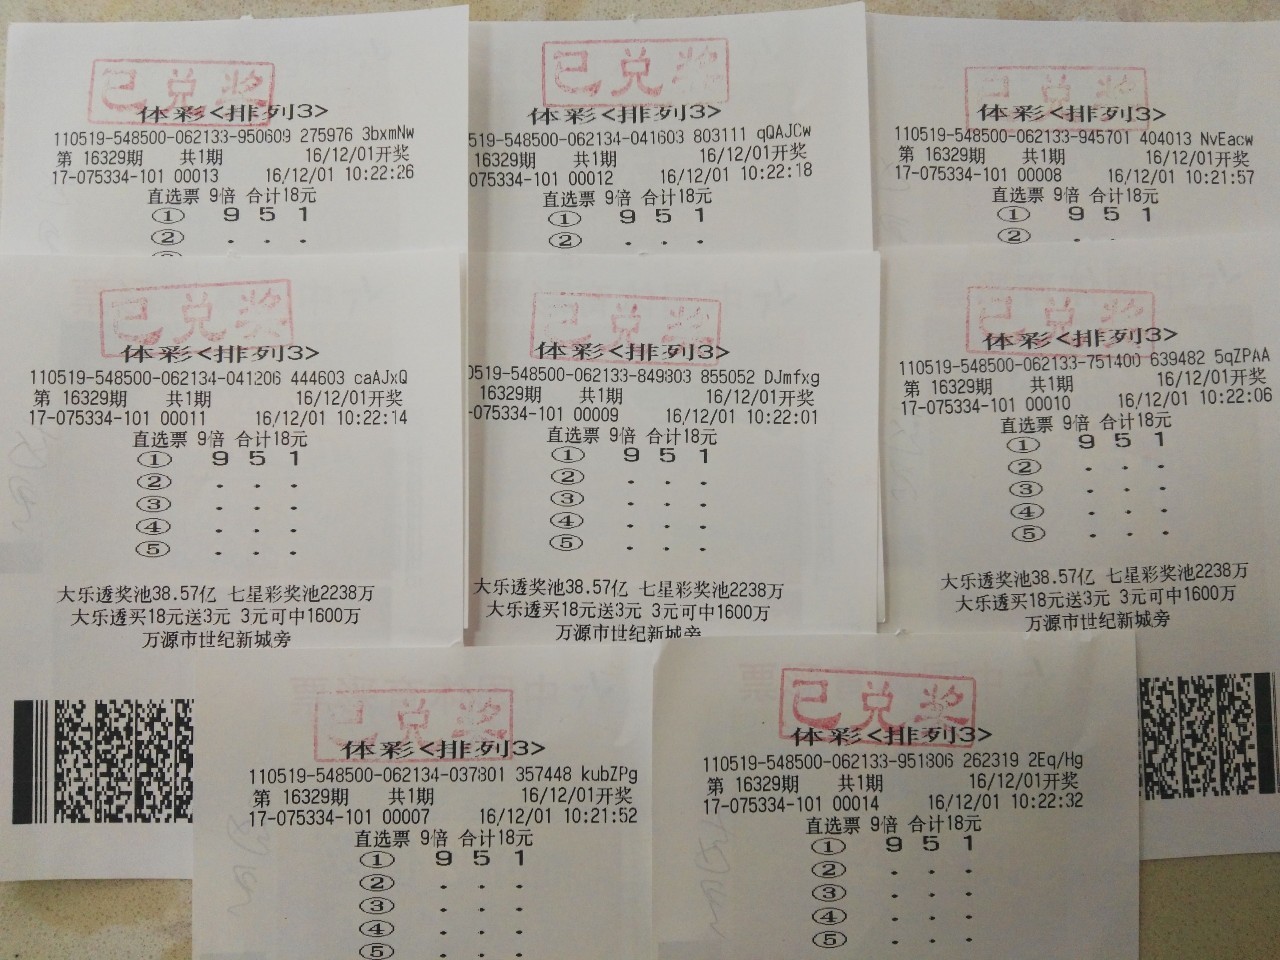 已兑奖
体彩<排列3>
110519-548500-062133-950609 275976 3bxmNw
第 16329期 共1期 16/12/01开奖
17-075334-101 00013 16/12/01 10:22:26
直选票 9倍 合计18元
① 9 5 1
② . . .
已兑奖
体彩<排列3>
0519-548500-062134-041603 803111 qQAJCw
16329期 共1期 16/12/01开奖
075334-101 00012 16/12/01 10:22:18
直选票 9倍 合计18元
① 9 5 1
② . . .
已兑奖
体彩<排列3>
110519-548500-062133-945701 404013 NvEacw
第 16329期 共1期 16/12/01开奖
17-075334-101 00008 16/12/01 10:21:57
直选票 9倍 合计18元
① 9 5 1
② . .
已兑奖
体彩<排列3>
110519-548500-062134-041206 444603 caAJxQ
第 16329期 共1期 16/12/01开奖
17-075334-101 00011 16/12/01 10:22:14
直选票 9倍 合计18元
① 9 5 1
② . . .
③ . . .
④ . . .
⑤ . . .
大乐透奖池38.57亿 七星彩奖池2238万
大乐透买18元送3元 3元可中1600万
万源市世纪新城旁
已兑奖
体彩<排列3>
0519-548500-062133-849303 855052 DJmfxg
16329期 共1期 16/12/01开奖
-075334-101 00009 16/12/01 10:22:01
直选票 9倍 合计18元
① 9 5 1
② . . .
③ . . .
④ . . .
⑤ . . .
大乐透奖池38.57亿 七星彩奖池2238万
大乐透买18元送3元 3元可中1600万
万源市世纪新城旁
已兑奖
体彩<排列3>
110519-548500-062133-751400 639482 5qZPAA
第 16329期 共1期 16/12/01开奖
17-075334-101 00010 16/12/01 10:22:06
直选票 9倍 合计18元
① 9 5 1
② . . .
③ . . .
④ . . .
⑤ . . .
大乐透奖池38.57亿 七星彩奖池2238万
大乐透买18元送3元 3元可中1600万
万源市世纪新城旁
已兑奖
体彩<排列3>
110519-548500-062134-037801 357448 kubZPg
第 16329期 共1期 16/12/01开奖
17-075334-101 00007 16/12/01 10:21:52
直选票 9倍 合计18元
① 9 5 1
② . . .
③ . . .
④ . . .
⑤ . . .
已兑奖
体彩<排列3>
110519-548500-062133-951806 262319 2Eq/Hg
第 16329期 共1期 16/12/01开奖
17-075334-101 00014 16/12/01 10:22:32
直选票 9倍 合计18元
① 9 5 1
② . . .
③ . . .
④ . . .
⑤ . . .